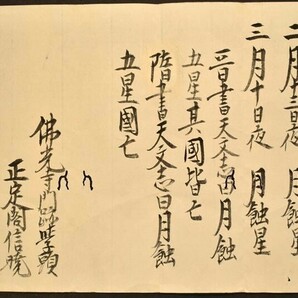 二月十三日夜 月蝕星
三月十日夜 月蝕星
晋書天文志曰月蝕
五星其國皆亡
隋書天文志曰月蝕
五星國亡
佛光寺門跡学頭
正定閣信暁